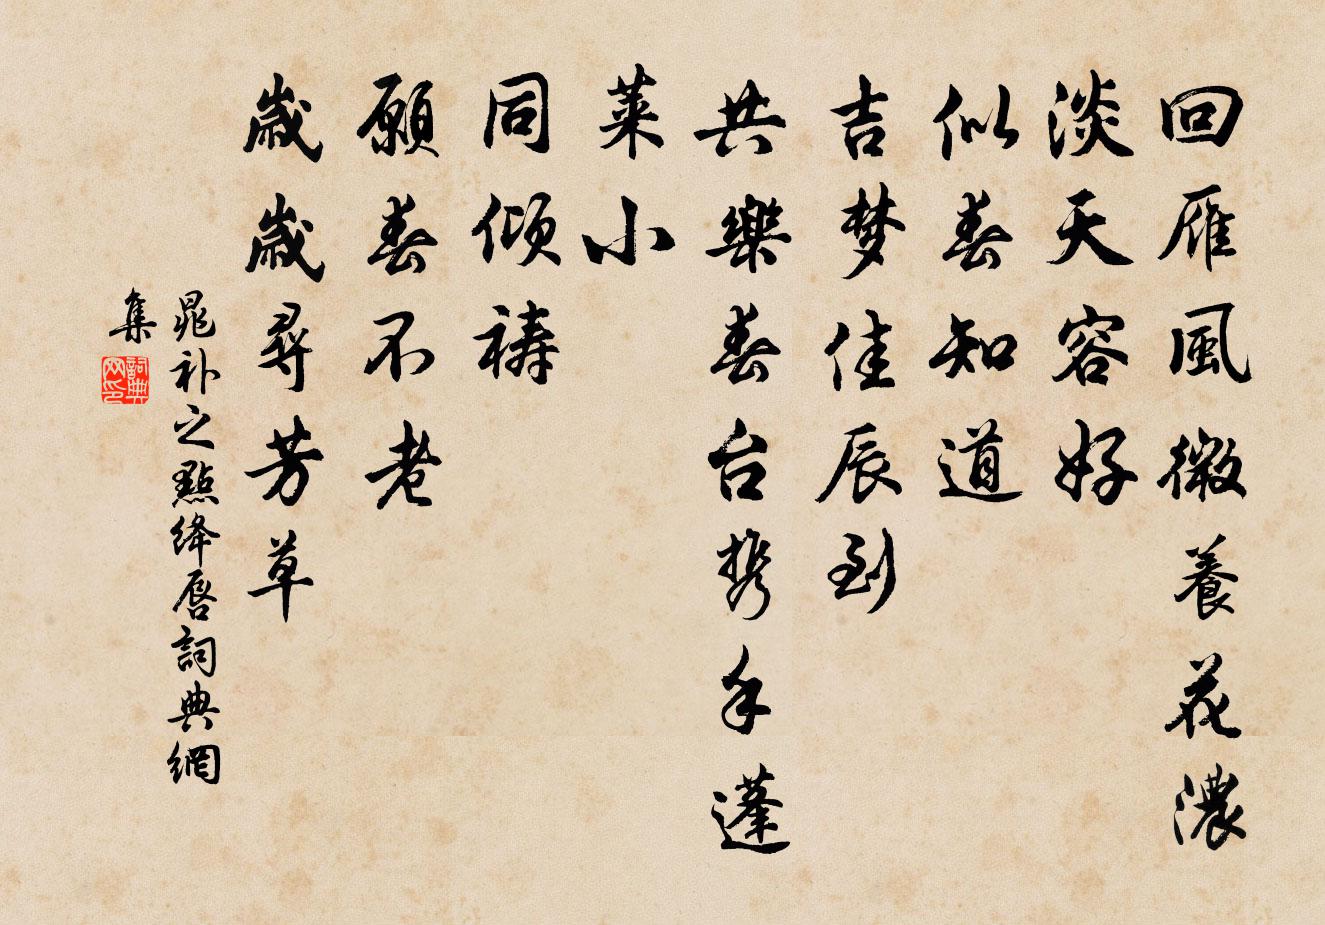 回雁風微養花濃
淡天容好
似春知道
吉梦佳辰到
共樂春台携手蓬
莱小
同倾祷
願春不老
歲歲尋芳草
晁补之點绛唇詞典網
集
詞典
网印